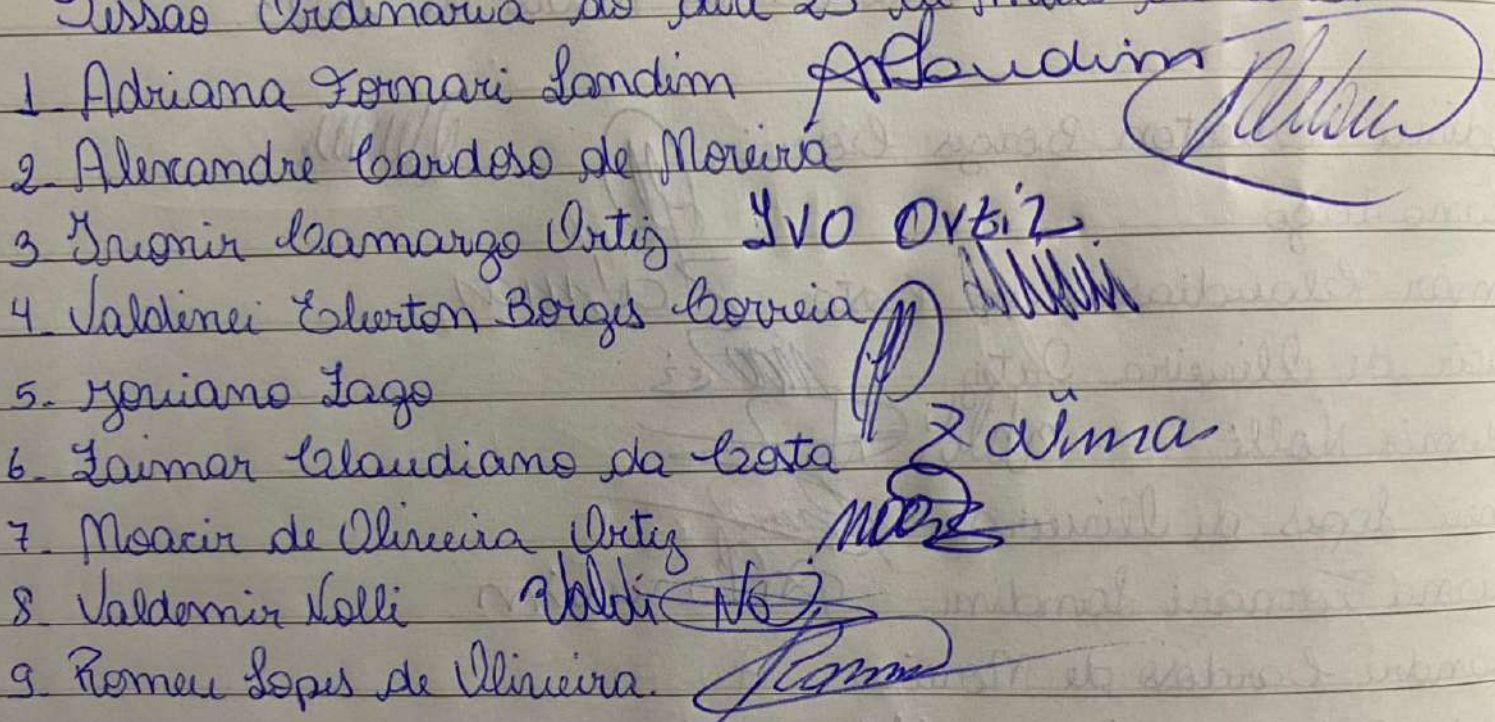 Sessão Ordinaria do dia 25 de
1 Adriana Fornari Landim AFLandim
2- Alexandre Cardoso de Moreira
3 Ivonir Camargo Ortiz IVO Ortiz
4- Valdinei Elerton Borges Correia
5- Joviano Lago
6- Zaimar Claudiano da Costa Zaima
7- Moacir de Oliveira Ortiz
8 Valdemir Nolli Valdi No
9 Romeu Lopes de Oliveira.